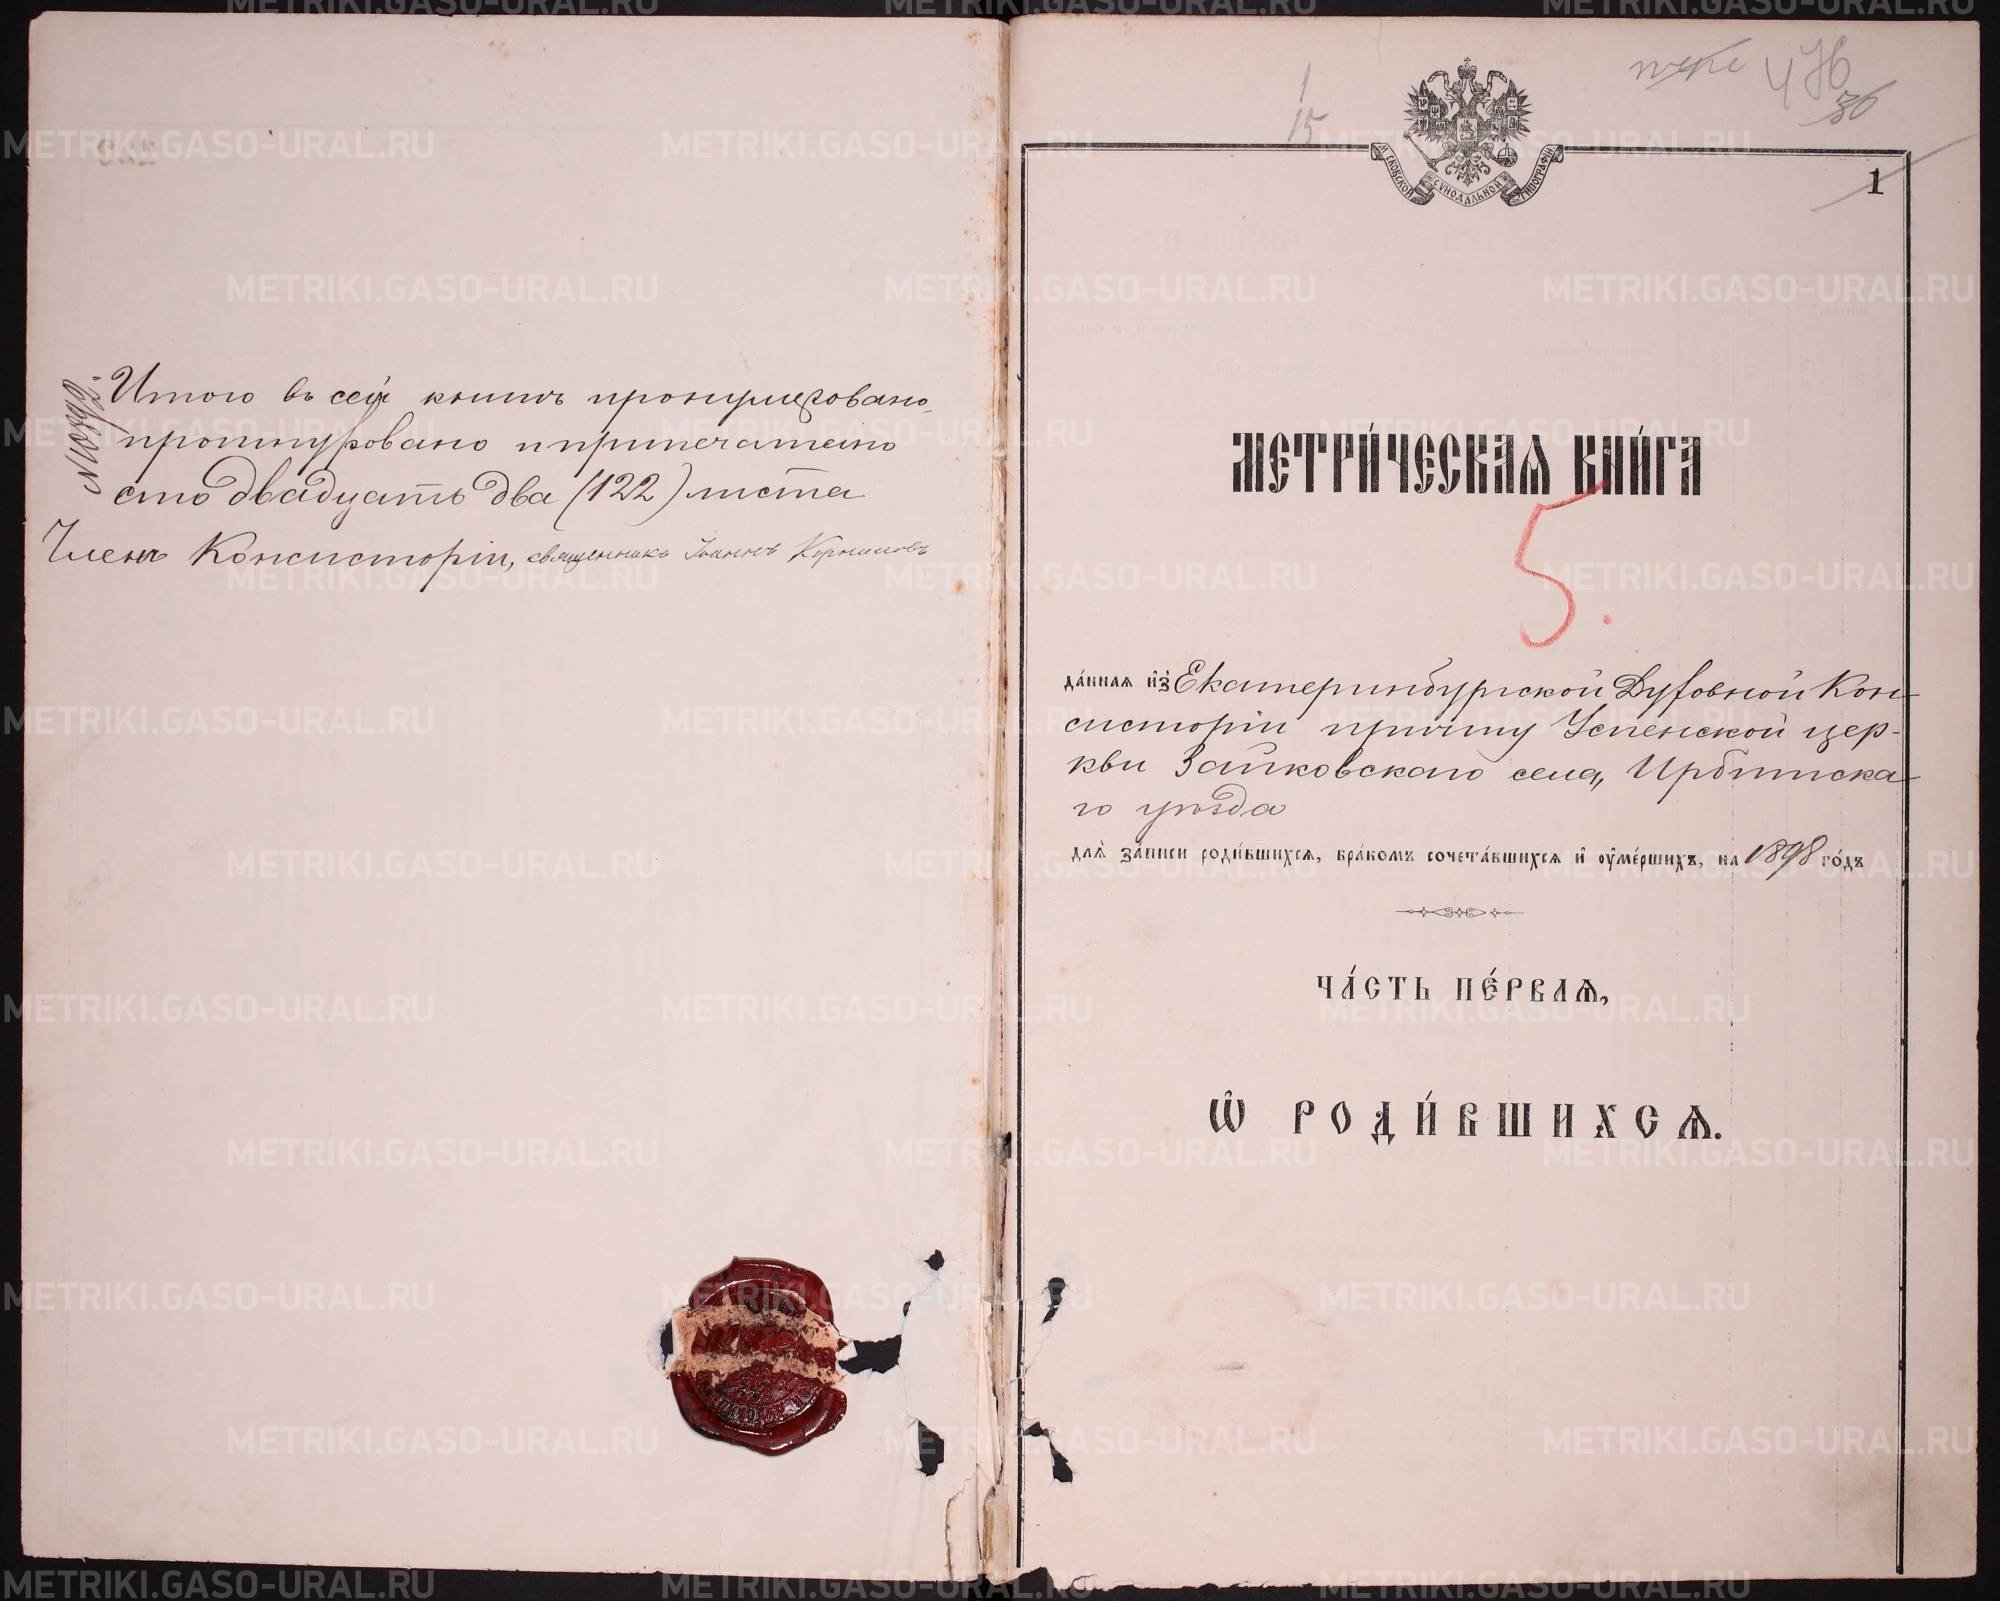 Итого въ сей книгѣ пронумеровано,
прошнуровано и припечатано
сто двадцать два (122) листа
Членъ Консисторіи, священникъ Іоаннъ
1
15
476
36
МОСКОВСКОЙ СѴНОДАЛЬНОЙ ТИПОГРАФІИ
1
МЕТРИ́ЧЕСКАѦ КНИ́ГА
5.
да́нная и҆з̾ Екатеринбургской Духовной Кон-
систоріи причту Успенской цер-
кви Зайковскаго села, Ирбитска-
го уѣзда
для̀ за́писи роди́вшихся, бра́комъ сочета́вшихся и҆ ᲂу҆ме́ршихъ, на 1898 го́дъ
ЧА́СТЬ ПЕ́РВАѦ,
Ѽ РОДИ́ВШИХСѦ.
METRIKI.GASO-URAL.RU